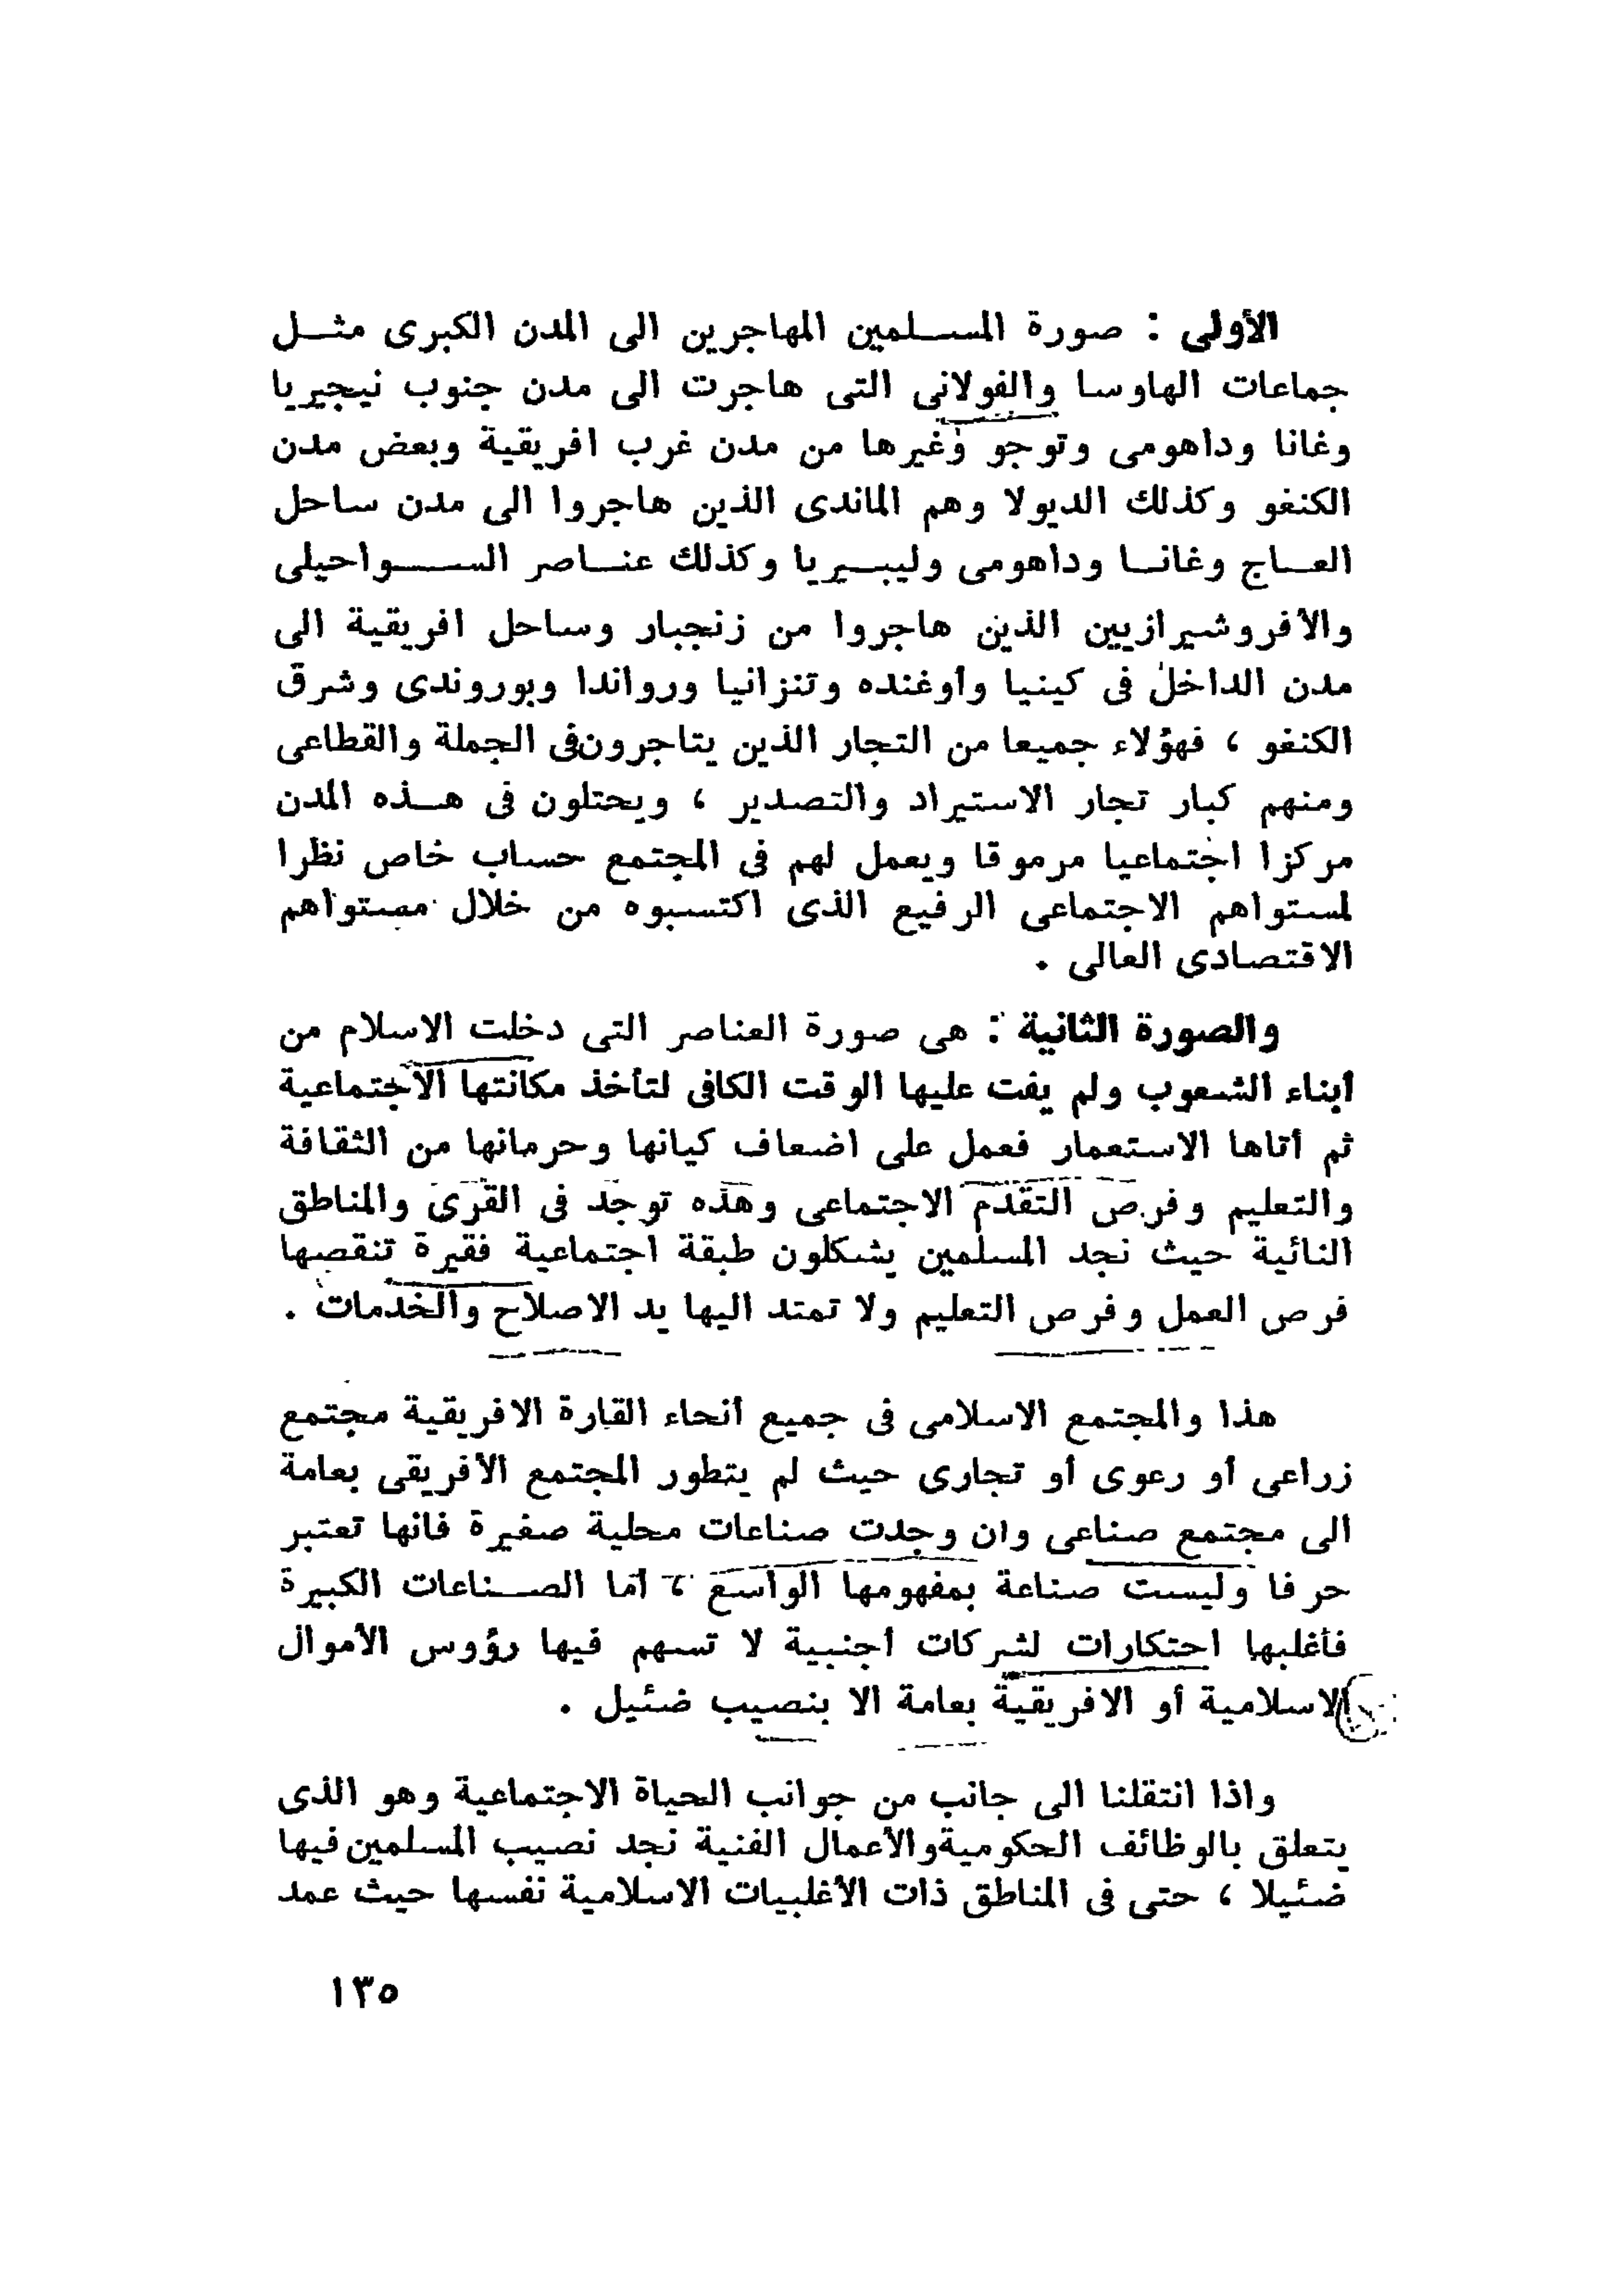 الأولى : صورة المسلمين المهاجرين الى المدن الكبرى مثل
جماعات الهاوسا والفولانى التى هاجرت الى مدن جنوب نيجيريا
وغانا وداهومى وتوجو وغيرها من مدن غرب افريقية وبعض مدن
الكنغو وكذلك الديولا وهم الماندى الذين هاجروا الى مدن ساحل
العاج وغانا وداهومى وليبيريا وكذلك عناصر السواحيلى
والأفروشيرازيين الذين هاجروا من زنجبار وساحل افريقية الى
مدن الداخل فى كينيا وأوغنده وتنزانيا ورواندا وبوروندى وشرق
الكنغو ، فهؤلاء جميعا من التجار الذين يتاجرون فى الجملة والقطاعى
ومنهم كبار تجار الاستيراد والتصدير ، ويحتلون فى هذه المدن
مركزا اجتماعيا مرموقا ويعمل لهم فى المجتمع حساب خاص نظرا
لمستواهم الاجتماعى الرفيع الذى اكتسبوه من خلال مستواهم
الاقتصادى العالى .
والصورة الثانية : هى صورة العناصر التى دخلت الاسلام من
أبناء الشعوب ولم يفت عليها الوقت الكافى لتأخذ مكانتها الاجتماعية
ثم أتاها الاستعمار فعمل على اضعاف كيانها وحرمانها من الثقافة
والتعليم وفرص التقدم الاجتماعى وهذه توجد فى القرى والمناطق
النائية حيث نجد المسلمين يشكلون طبقة اجتماعية فقيرة تنقصها
فرص العمل وفرص التعليم ولا تمتد اليها يد الاصلاح والخدمات .
هذا والمجتمع الاسلامى فى جميع أنحاء القارة الافريقية مجتمع
زراعى أو رعوى أو تجارى حيث لم يتطور المجتمع الأفريقى بعامة
الى مجتمع صناعى وان وجدت صناعات محلية صغيرة فانها تعتبر
حرفا وليست صناعة بمفهومها الواسع ، أما الصناعات الكبيرة
فأغلبها احتكارات لشركات أجنبية لا تسهم فيها رؤوس الأموال
الاسلامية أو الافريقية بعامة الا بنصيب ضئيل .
واذا انتقلنا الى جانب من جوانب الحياة الاجتماعية وهو الذى
يتعلق بالوظائف الحكومية والأعمال الفنية نجد نصيب المسلمين فيها
ضئيلا ، حتى فى المناطق ذات الأغلبيات الاسلامية نفسها حيث عمد
١٣٥